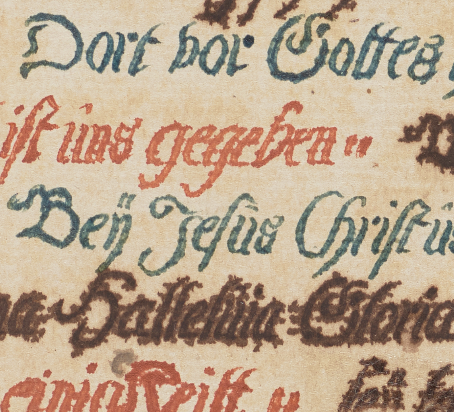 Dort vor Gottes
ist uns gegeben "
Beÿ Jesus Christus
Halleluia = Gloria
einig Geist "